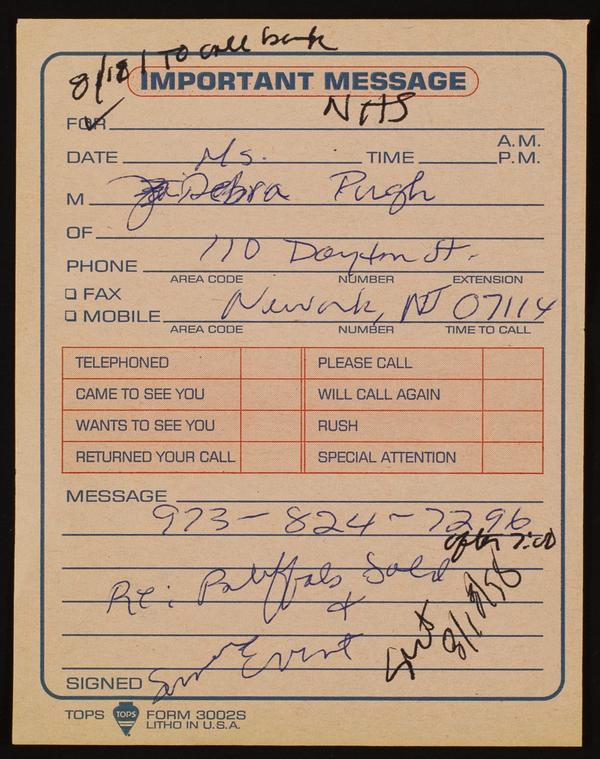 8/18 / To call bank
IMPORTANT MESSAGE
NHS
FOR
A.M.
DATE Ms. TIME P.M.
M Debra Pugh
OF
110 Dayton St.
PHONE
AREA CODE NUMBER EXTENSION
FAX
Newark, NJ 07114
MOBILE
AREA CODE NUMBER TIME TO CALL
TELEPHONED PLEASE CALL
CAME TO SEE YOU WILL CALL AGAIN
WANTS TO SEE YOU RUSH
RETURNED YOUR CALL SPECIAL ATTENTION
MESSAGE
973-824-7296
after 7:00
Re: Sold
&
Sent
Event
SIGNED
TOPS TOPS FORM 3002S
LITHO IN U.S.A.